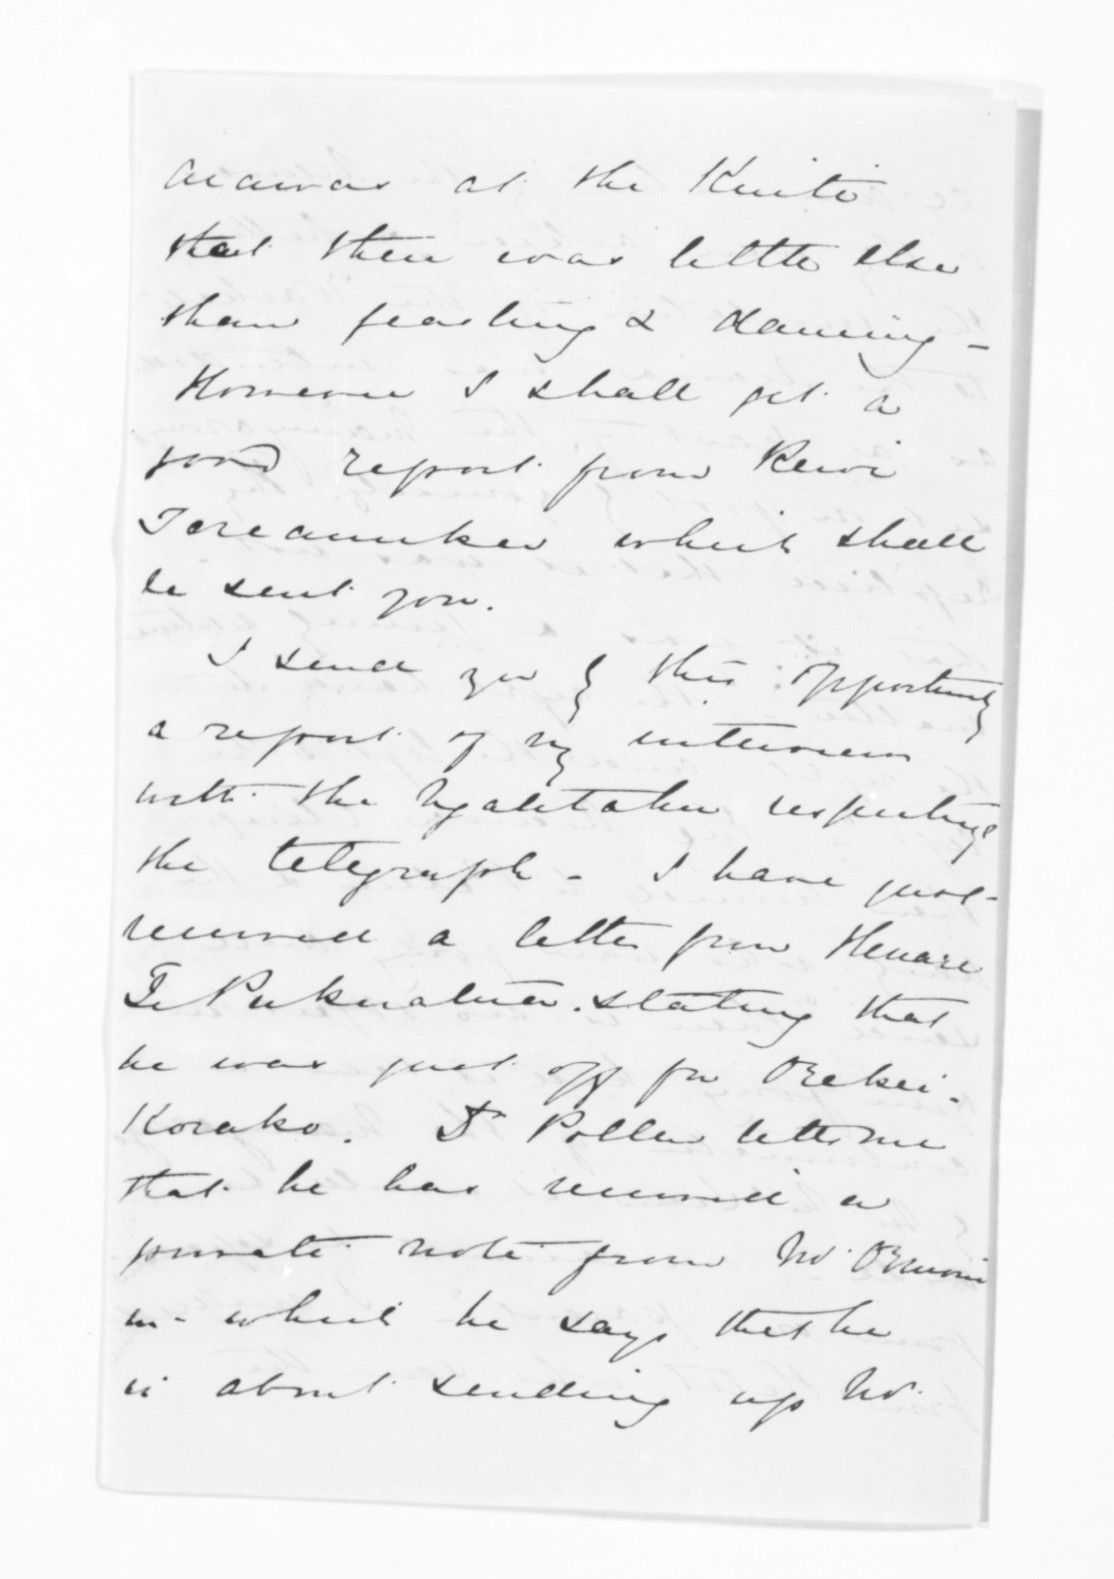 Arawas at the Kuiti
that there was little else
than feasting & dancing -
However I shall get a
good report from Rewi
Tereanuku which shall
be sent you.
I send you by this opportunity
a report of my interview
with the Ngatitahu respecting
the telegraph - I have just
received a letter from Henare
Te Pukuatua stating that
he was just off for Orakei-
Korako. Dr Pollen tells me
that he has received a
private note from Mr Ormond
in which he says that he
is about sending up Mr